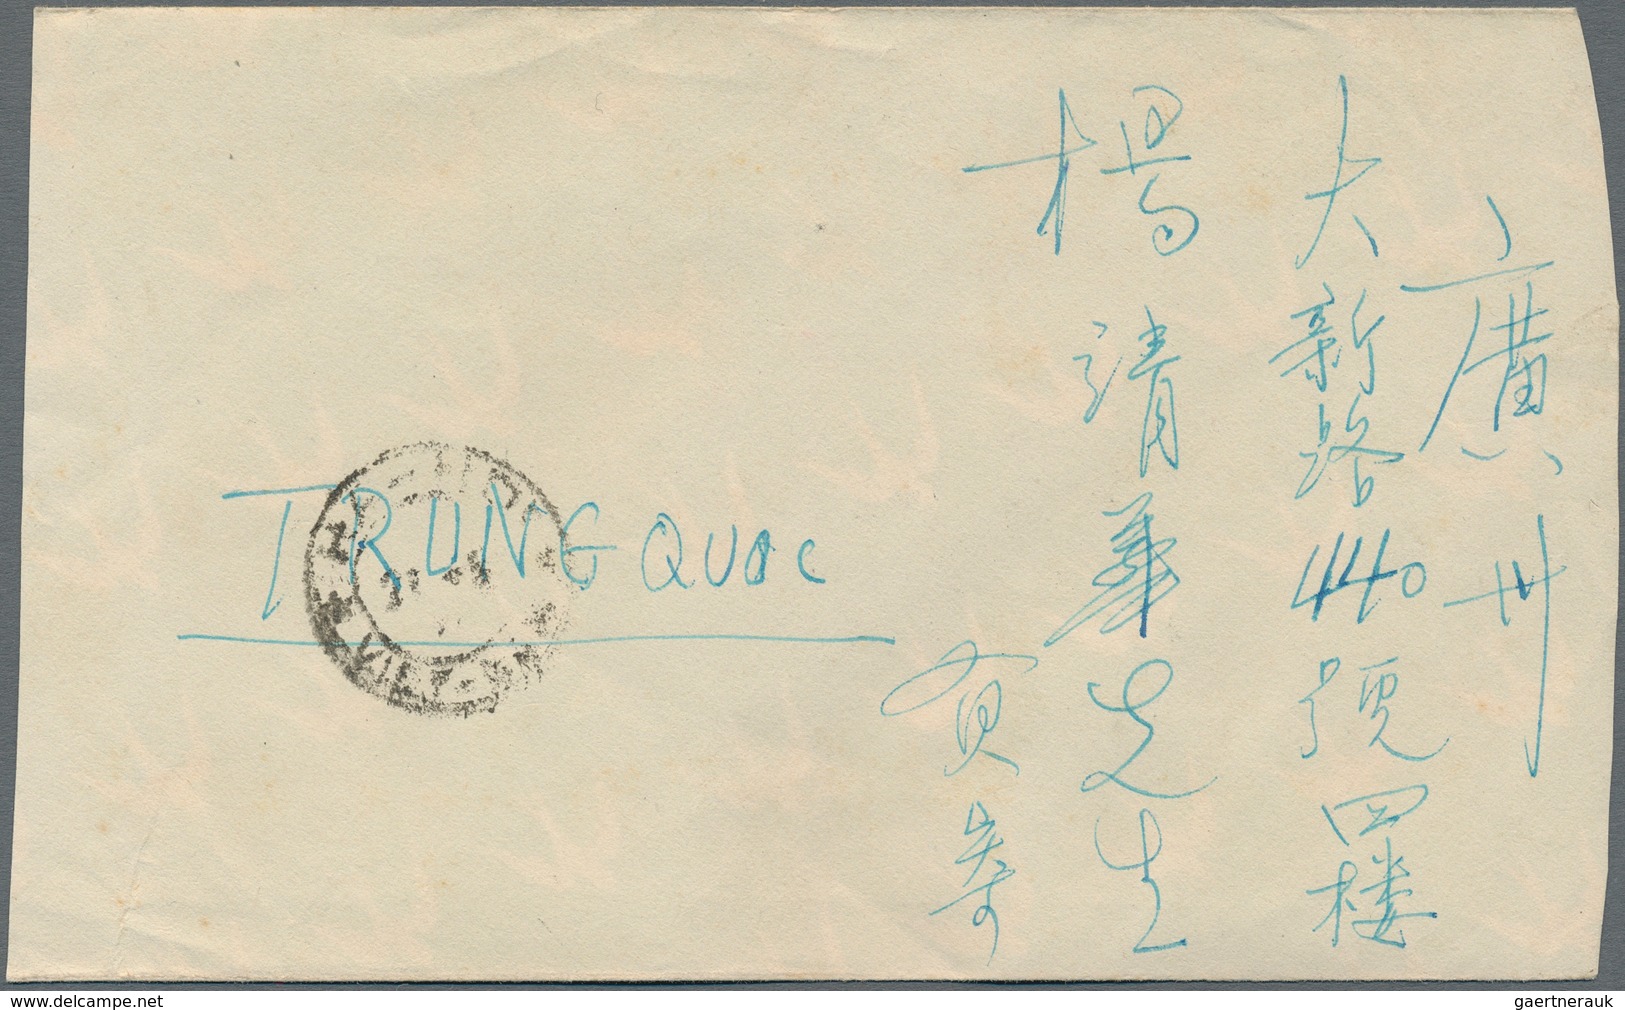 廣州
大新路440號四樓
楊清華先生
賀寄
TRUNG QUOC
VIET-NAM
www.delcampe.net
gaertnerauk